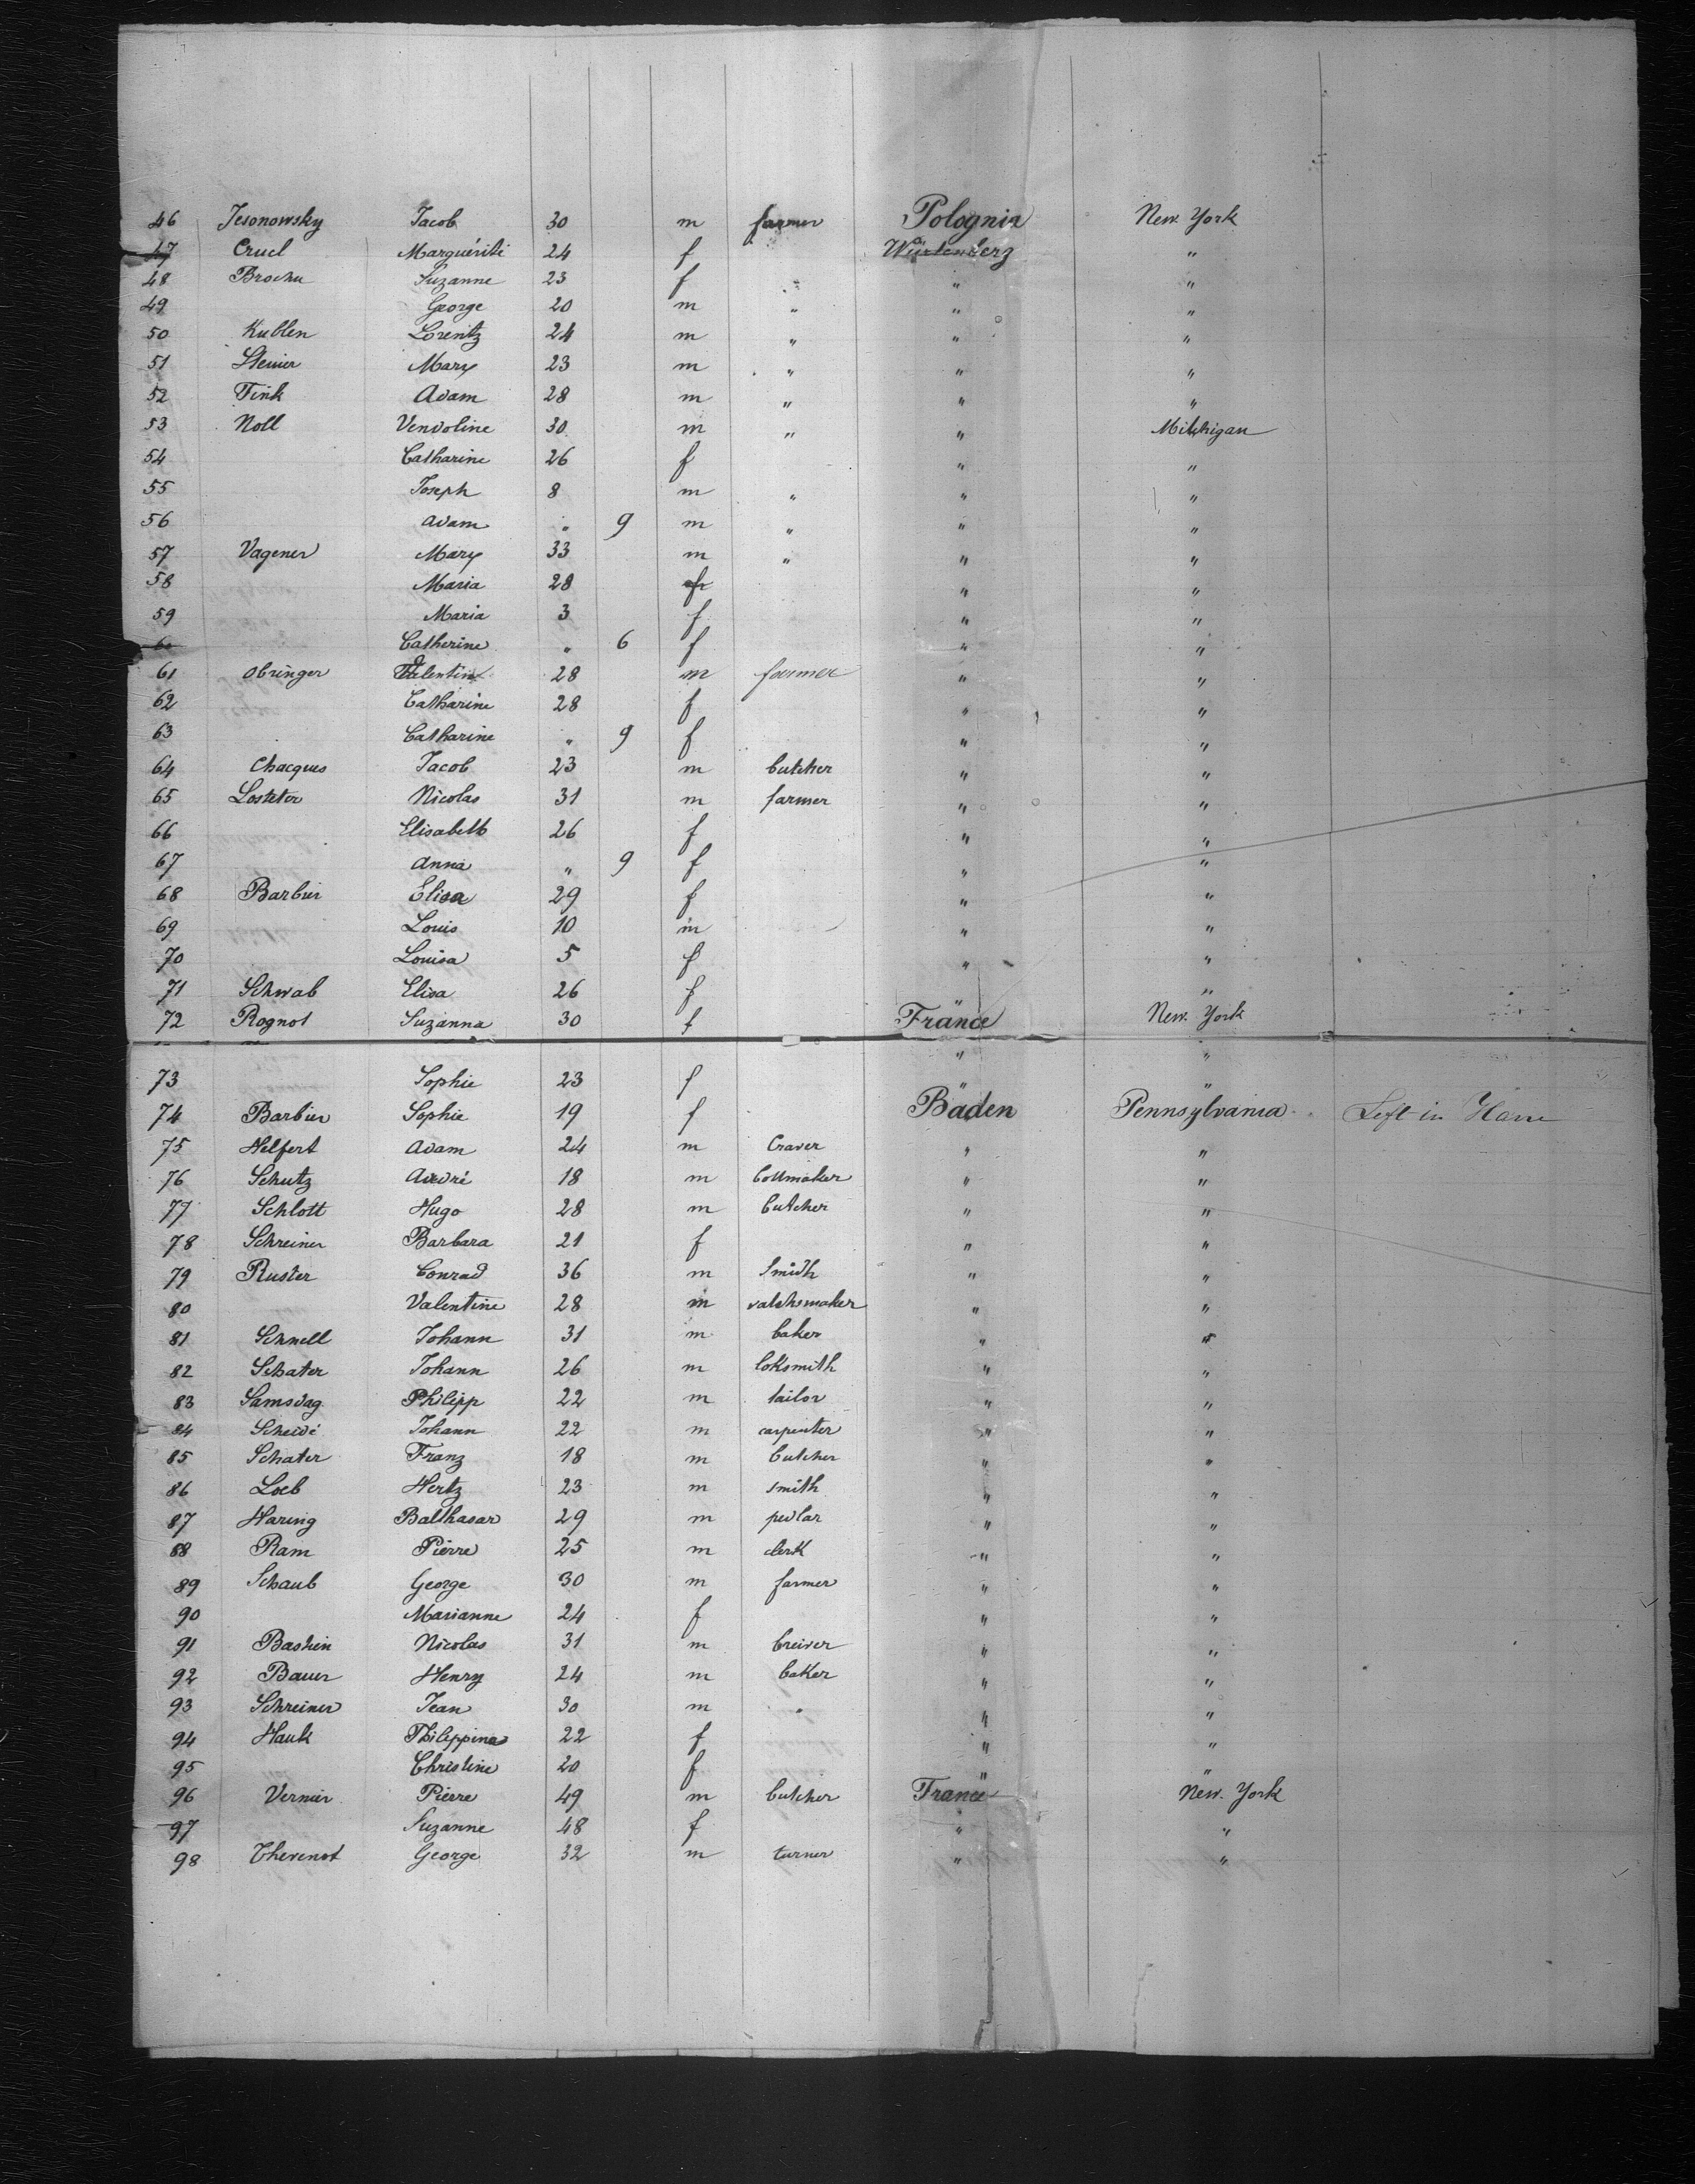 46 Jesonowsky Jacob 30 m farmer Polognia New York
47 Cruel Marguériti 24 f Würtenberg "
48 Brochu Suzanne 23 f " " "
49 George 20 m " " "
50 Kublen Lorentz 24 m " " "
51 Steiner Mary 23 m " " "
52 Fink Adam 28 m " " "
53 Noll Vendoline 30 m " " Michigan
54 Catharine 26 f " "
55 Joseph 8 m " " "
56 Adam " 9 m " " "
57 Vagener Mary 33 m " " "
58 Maria 28 f " "
59 Maria 3 f " "
60 Catherine " 6 f " "
61 Obringer Valentin 28 m farmer " "
62 Catharine 28 f " "
63 Catharine " 9 f " "
64 Chacques Jacob 23 m butcher " "
65 Losteter Nicolas 31 m farmer " "
66 Elisabeth 26 f " "
67 Anna " 9 f " "
68 Barbier Elisa 29 f " "
69 Louis 10 m " "
70 Louisa 5 f " "
71 Schwab Elisa 26 f " "
72 Rognot Suzanna 30 f France New York
" "
73 Sophie 23 f " "
74 Barbier Sophie 19 f Baden Pennsylvania Left in Havre
75 Helfert Adam 24 m Craver " "
76 Schutz André 18 m " "
77 Schlott Hugo 28 m butcher " "
78 Schreiner Barbara 21 f " "
79 Ruster Conrad 36 m Smidh " "
80 Valentine 28 m vatchsmaker " "
81 Schnell Johann 31 m baker " "
82 Schater Johann 26 m loksmith " "
83 Samsdag Philipp 22 m tailor " "
84 Scheidé Johann 22 m carpenter " "
85 Schater Franz 18 m butcher " "
86 Loeb Hertz 23 m smith " "
87 Haring Balthasar 29 m pedlar " "
88 Ram Pierre 25 m clerk " "
89 Schaub George 30 m farmer " "
90 Marianne 24 f " "
91 Bashin Nicolas 31 m breiver " "
92 Bauer Henry 24 m baker " "
93 Schreiner Jean 30 m " " "
94 Hauk Philippina 22 f " "
95 Christine 20 f " "
96 Vernier Pierre 49 m butcher France New York
97 Suzanne 48 f " "
98 Thevenot George 32 m turner " "